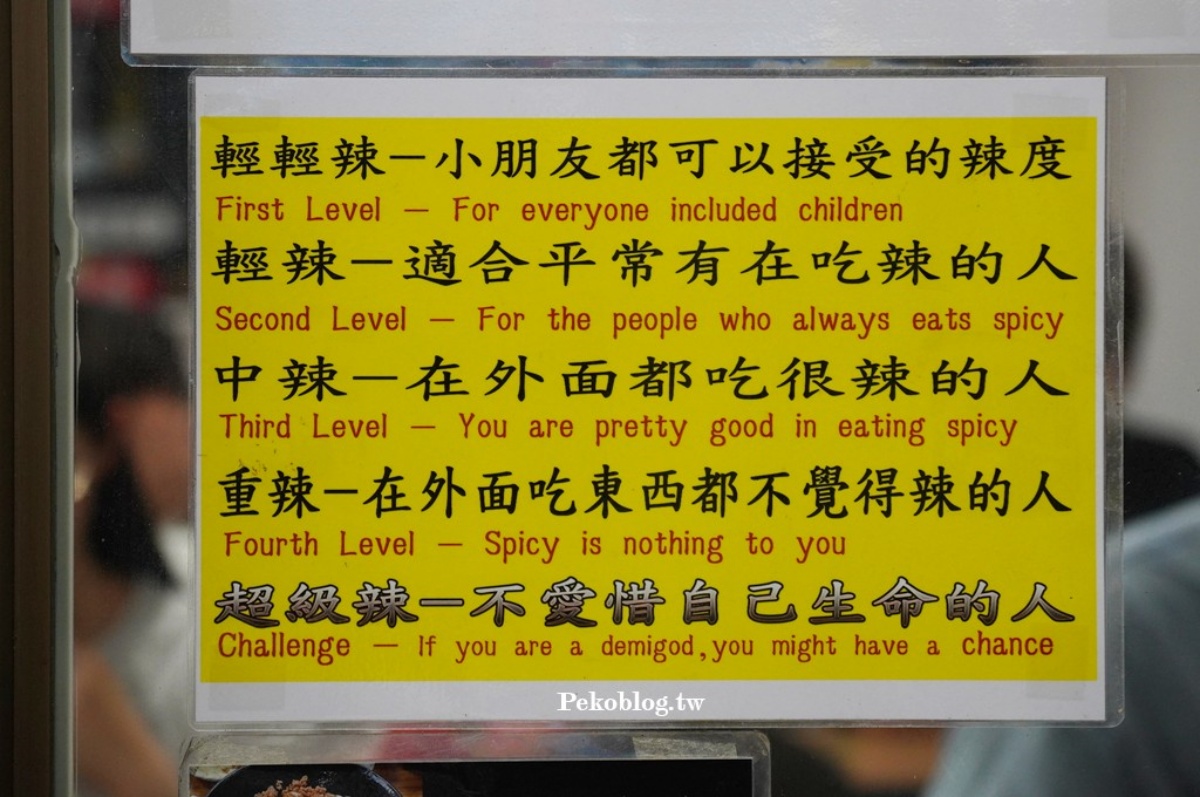 輕輕辣－小朋友都可以接受的辣度
First Level — For everyone included children
輕辣－適合平常有在吃辣的人
Second Level — For the people who always eats spicy
中辣－在外面都吃很辣的人
Third Level — You are pretty good in eating spicy
重辣－在外面吃東西都不覺得辣的人
Fourth Level — Spicy is nothing to you
超級辣－不愛惜自己生命的人
Challenge — If you are a demigod,you might have a chance
Pekoblog.tw